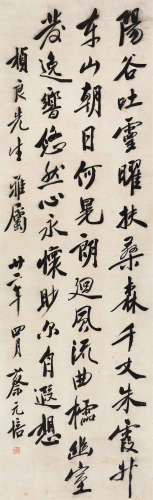 陽谷吐靈曜扶桑森千丈朱霞升
東山朝日何晃朗迴風流曲櫺幽室
發逸響悠然心永懷眇爾自遐想
楨良先生雅屬 廿二年四月 蔡元培